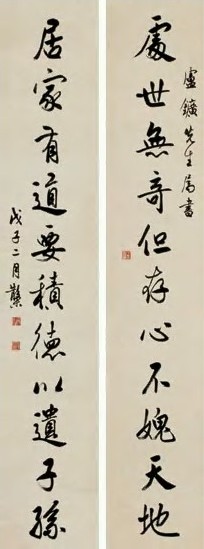 盧鑛先生屬書
處世無奇但存心不媿天地
居家有道要積德以遺子孫
戊子二月